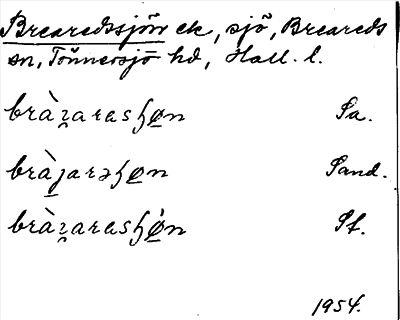 Brearedssjön ek, sjö, Breareds
sn, Tönnersjö hd, Hall. l.
bràʐarasɧøn Sa.
bràʝarəɧøn Sand.
bràʐarasɧø̀n Sf.
1954.